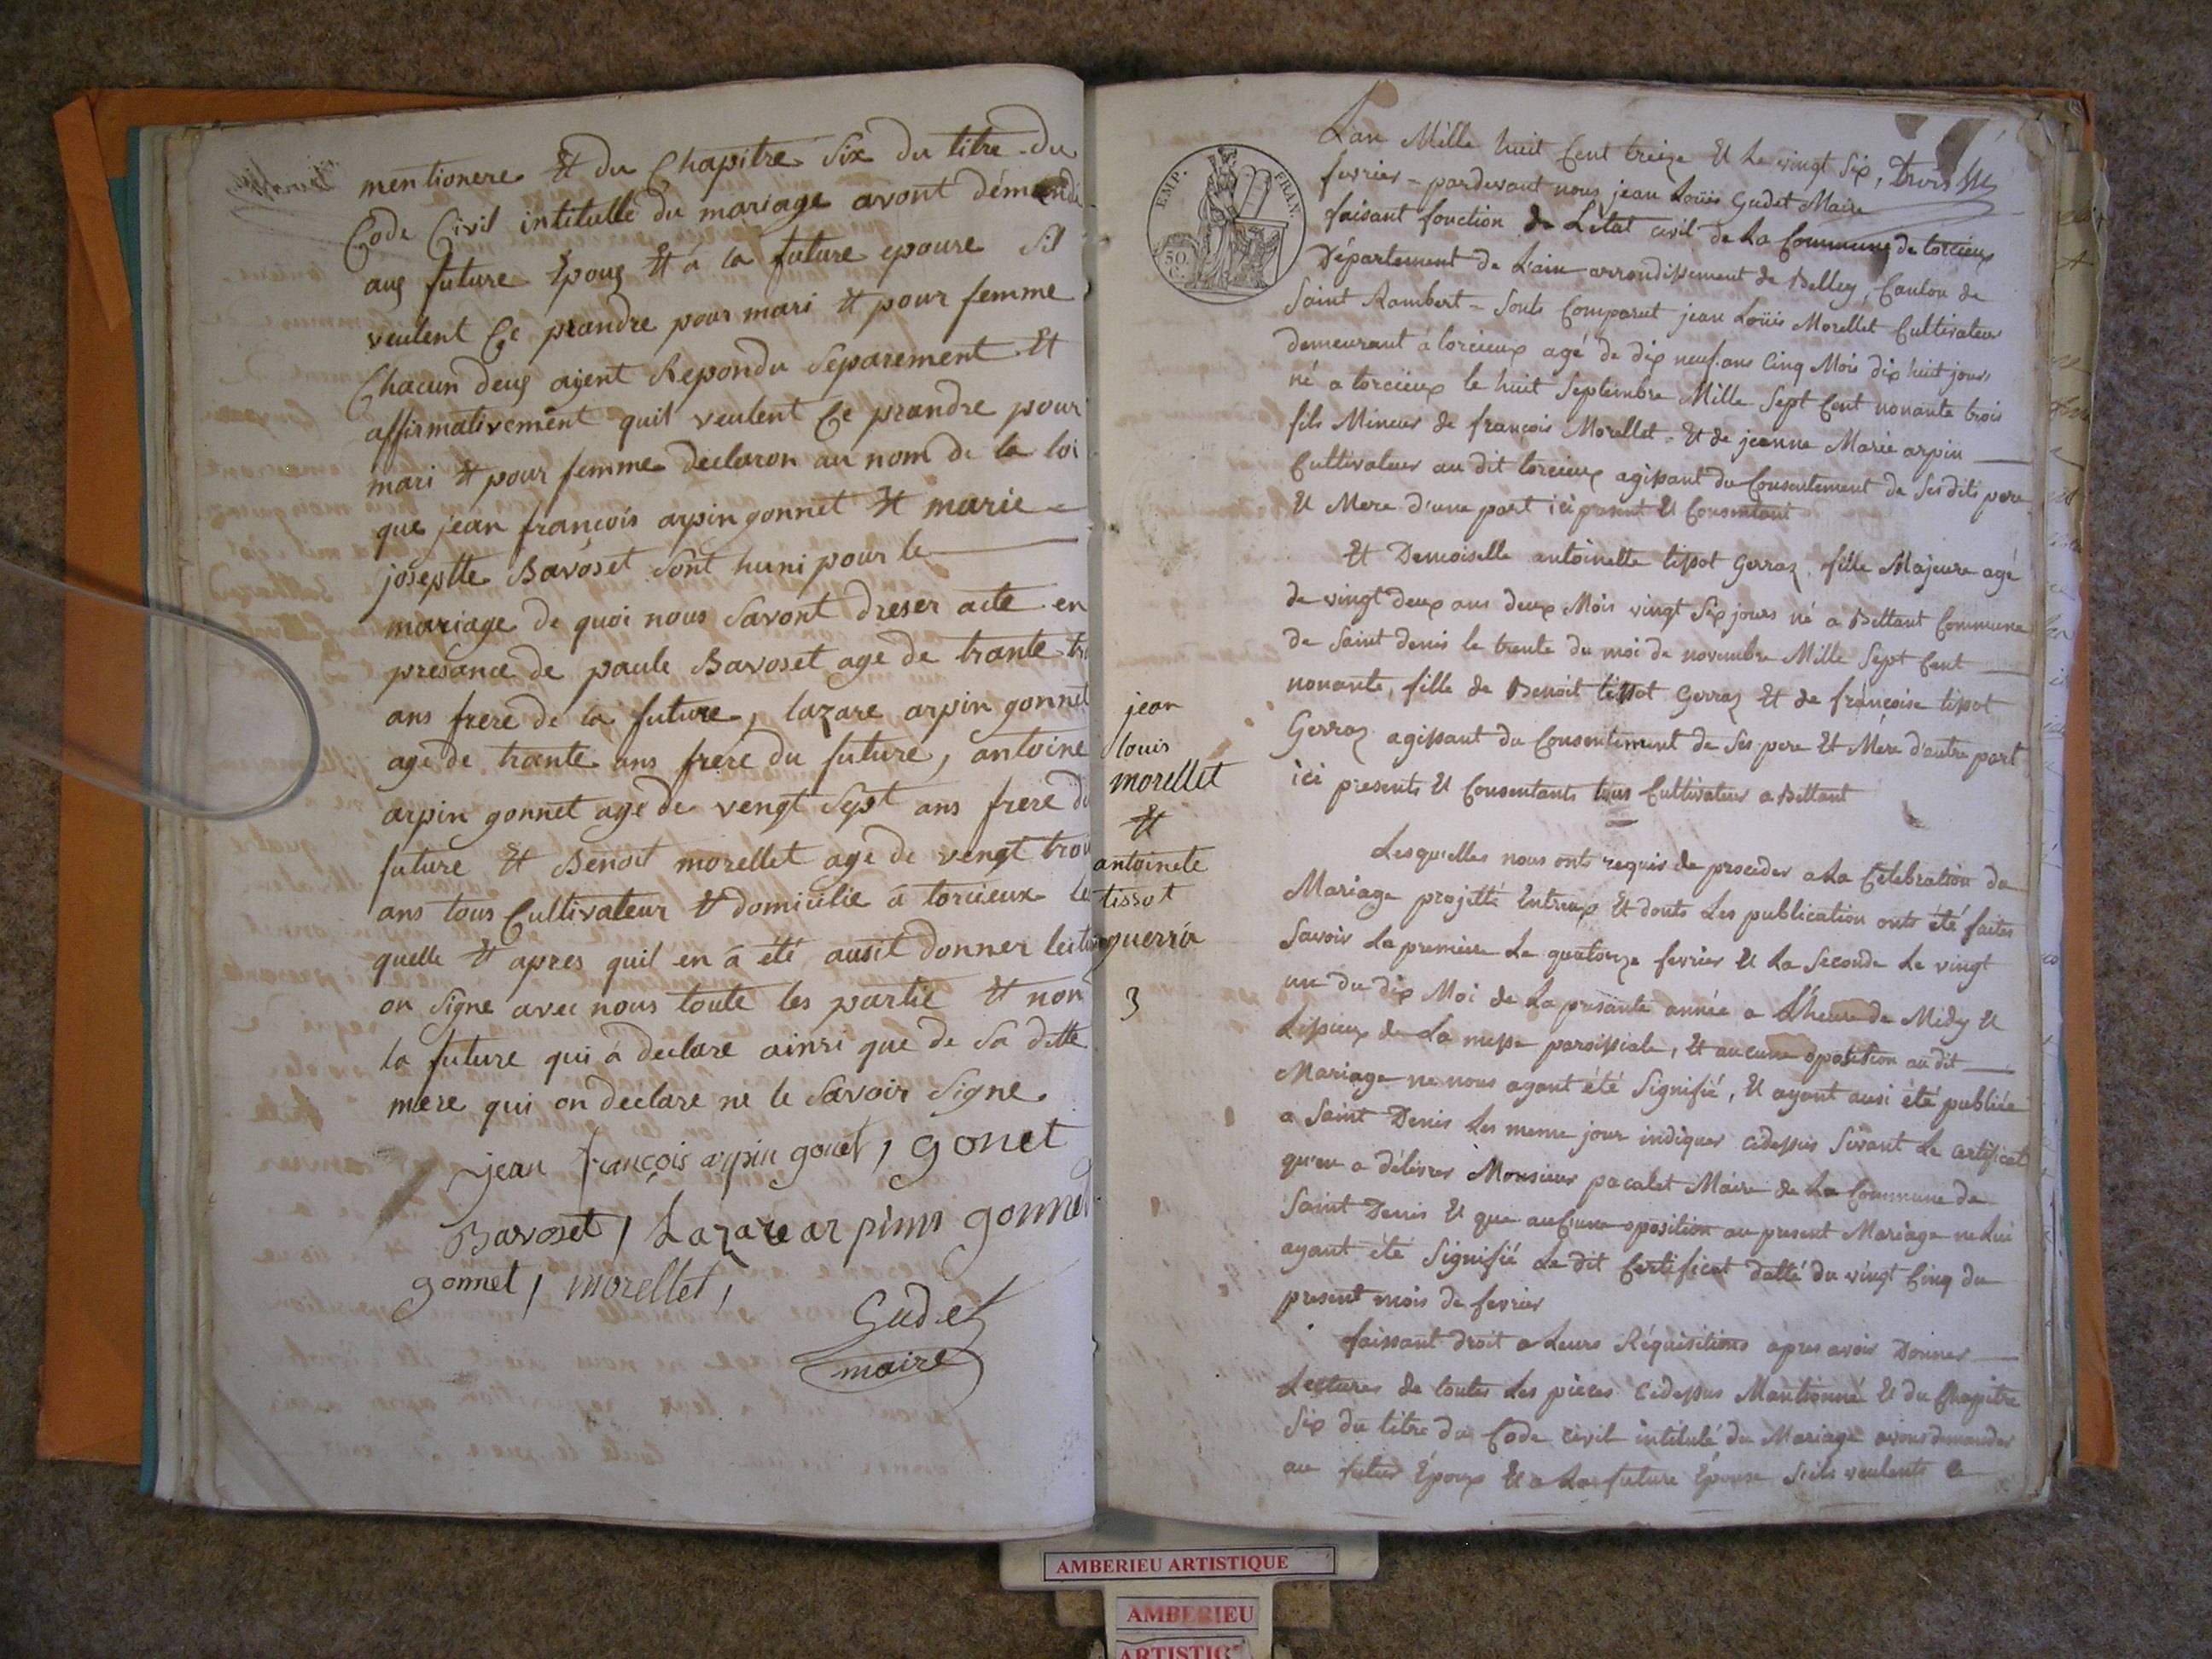 mentionere Et du Chapitre Six du titre du
Code Civil intitullé du mariage avont démandé
aux future Epoux Et a la future epouse Sil
veulent Ce prandre pour mari Et pour femme
Chacun deux ajent Repondu Separement Et
affirmativement quil veulent Ce prandre pour
mari Et pour femme declaron au nom de la loi
que jean françois arpin gonnet Et marie
joseptte Bavoset Sont huni pour le
mariage de quoi nous Savont dreser acte en
presance de paule Bavoset age de trante
ans frere de la future, lazare arpin gonnet
agé de trante ans frere du future, antoine
arpin gonnet agé de vengt Sept ans frere du
future Et Benoit morellet agé de vengt trois
ans tous Cultivateur Et domicilie á torcieux le
quelle Et apres quil en á été ausit donner lectur
on Signe avec nous toute les partie Et non
la future qui á declare ainsi que de Sa ditte
mere qui on declare ne le Savoir Signe.
jean françois arpin gonet, gonet
Bavoset, Lazare arpinn gonnet
gonnet, morellet,
Gudet
maire
EMP. FRAN.
50 C.
Lan Mille huit Cent treize Et Le vingt Six,
fevrier - pardevant nous jean Loüis Gudet Maire
faisant fonction de Letat civil de La Commune de torcieux
Département de Lain arrondissement de Belley, Canton de
Saint Rambert - Sonts Comparut jean Loüis Morellet Cultivateur
demeurant á torcieux agé de dix neuf ans Cinq Mois dix huit jours
né a torcieux le huit Septembre Mille Sept Cent nonante trois
fils Mineur de françois Morellet - Et de jeanne Marie arpin
Cultivateur au dit torcieux agissant du Consentement de Ses dits pere
Et Mere d'une part ici present Et Consentant
Et Demoiselle antoinette tissot Gerraz fille Majeure agé
de vingt deux ans deux Mois vingt Six jours né a Bettant Commune
de Saint denis le trente du moi de novembre Mille Sept Cent
nonante, fille de Benoit tissot Gerraz Et de françoise tissot
Gerraz agissant du Consentement de Ses pere Et Mere d'autre part
ici presents Et Consentants tous Cultivateur a Bettant
jean
louis
morellet
Et
antoinete
tissot
guerra
3
Lesquelles nous onts requis de proceder a La Célebration du
Mariage projetté Entreux Et donts Les publication onts été faites
Savoir La premiere Le quatorze fevrier Et La Seconde Le vingt
un du dix Moi de La presante année a L'heure de Midy Et
Lissieux de La messe paroissiale, Et aucune oposition au dit
Mariage ne nous ayant été Signifié, Et ayant ausi été publiée
a Saint Denis Les meme jour indiquer cidessus Sivant Le certificat
qu'en a délivrer Monsieur pacalet Maire de La Commune de
Saint Denis Et que aucune oposition au present Mariage ne Lui
ayant été Signifié Le dit Certificat datté du vingt Cinq du
present mois de fevrier
faissant droit a Leurs Réquisitions apres avoir Donner
Lectures de toutes Les pieces Cidessus Mantionné Et du Chapitre
Six du titre du Code civil intitulé du Mariage avons demander
au futur Époux Et a La future Épouse Sils veulents Ce
AMBERIEU ARTISTIQUE
AMBERIEU
ARTISTIQ